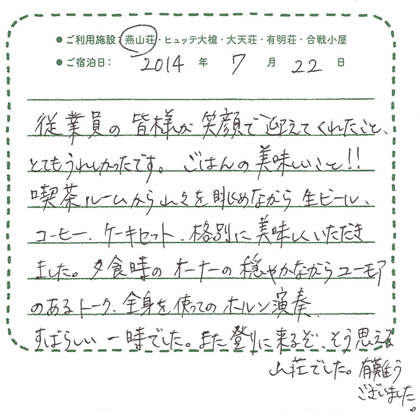 ●ご利用施設：燕山荘・ヒュッテ大槍・大天荘・有明荘・合戦小屋
●ご宿泊日： 2014 年 7 月 22 日
従業員の皆様が笑顔で迎えてくれたこと、
とてもうれしかったです。ごはんの美味しいこと!!
喫茶ルームから山々を眺めながら生ビール、
コーヒー、ケーキセット、格別に美味しくいただき
ました。夕食時のオーナーの穏やかながらユーモア
のあるトーク、全身を使ってのホルン演奏、
すばらしい一時でした。また登りに来るぞ、そう思える
山荘でした。有難う
ございました。